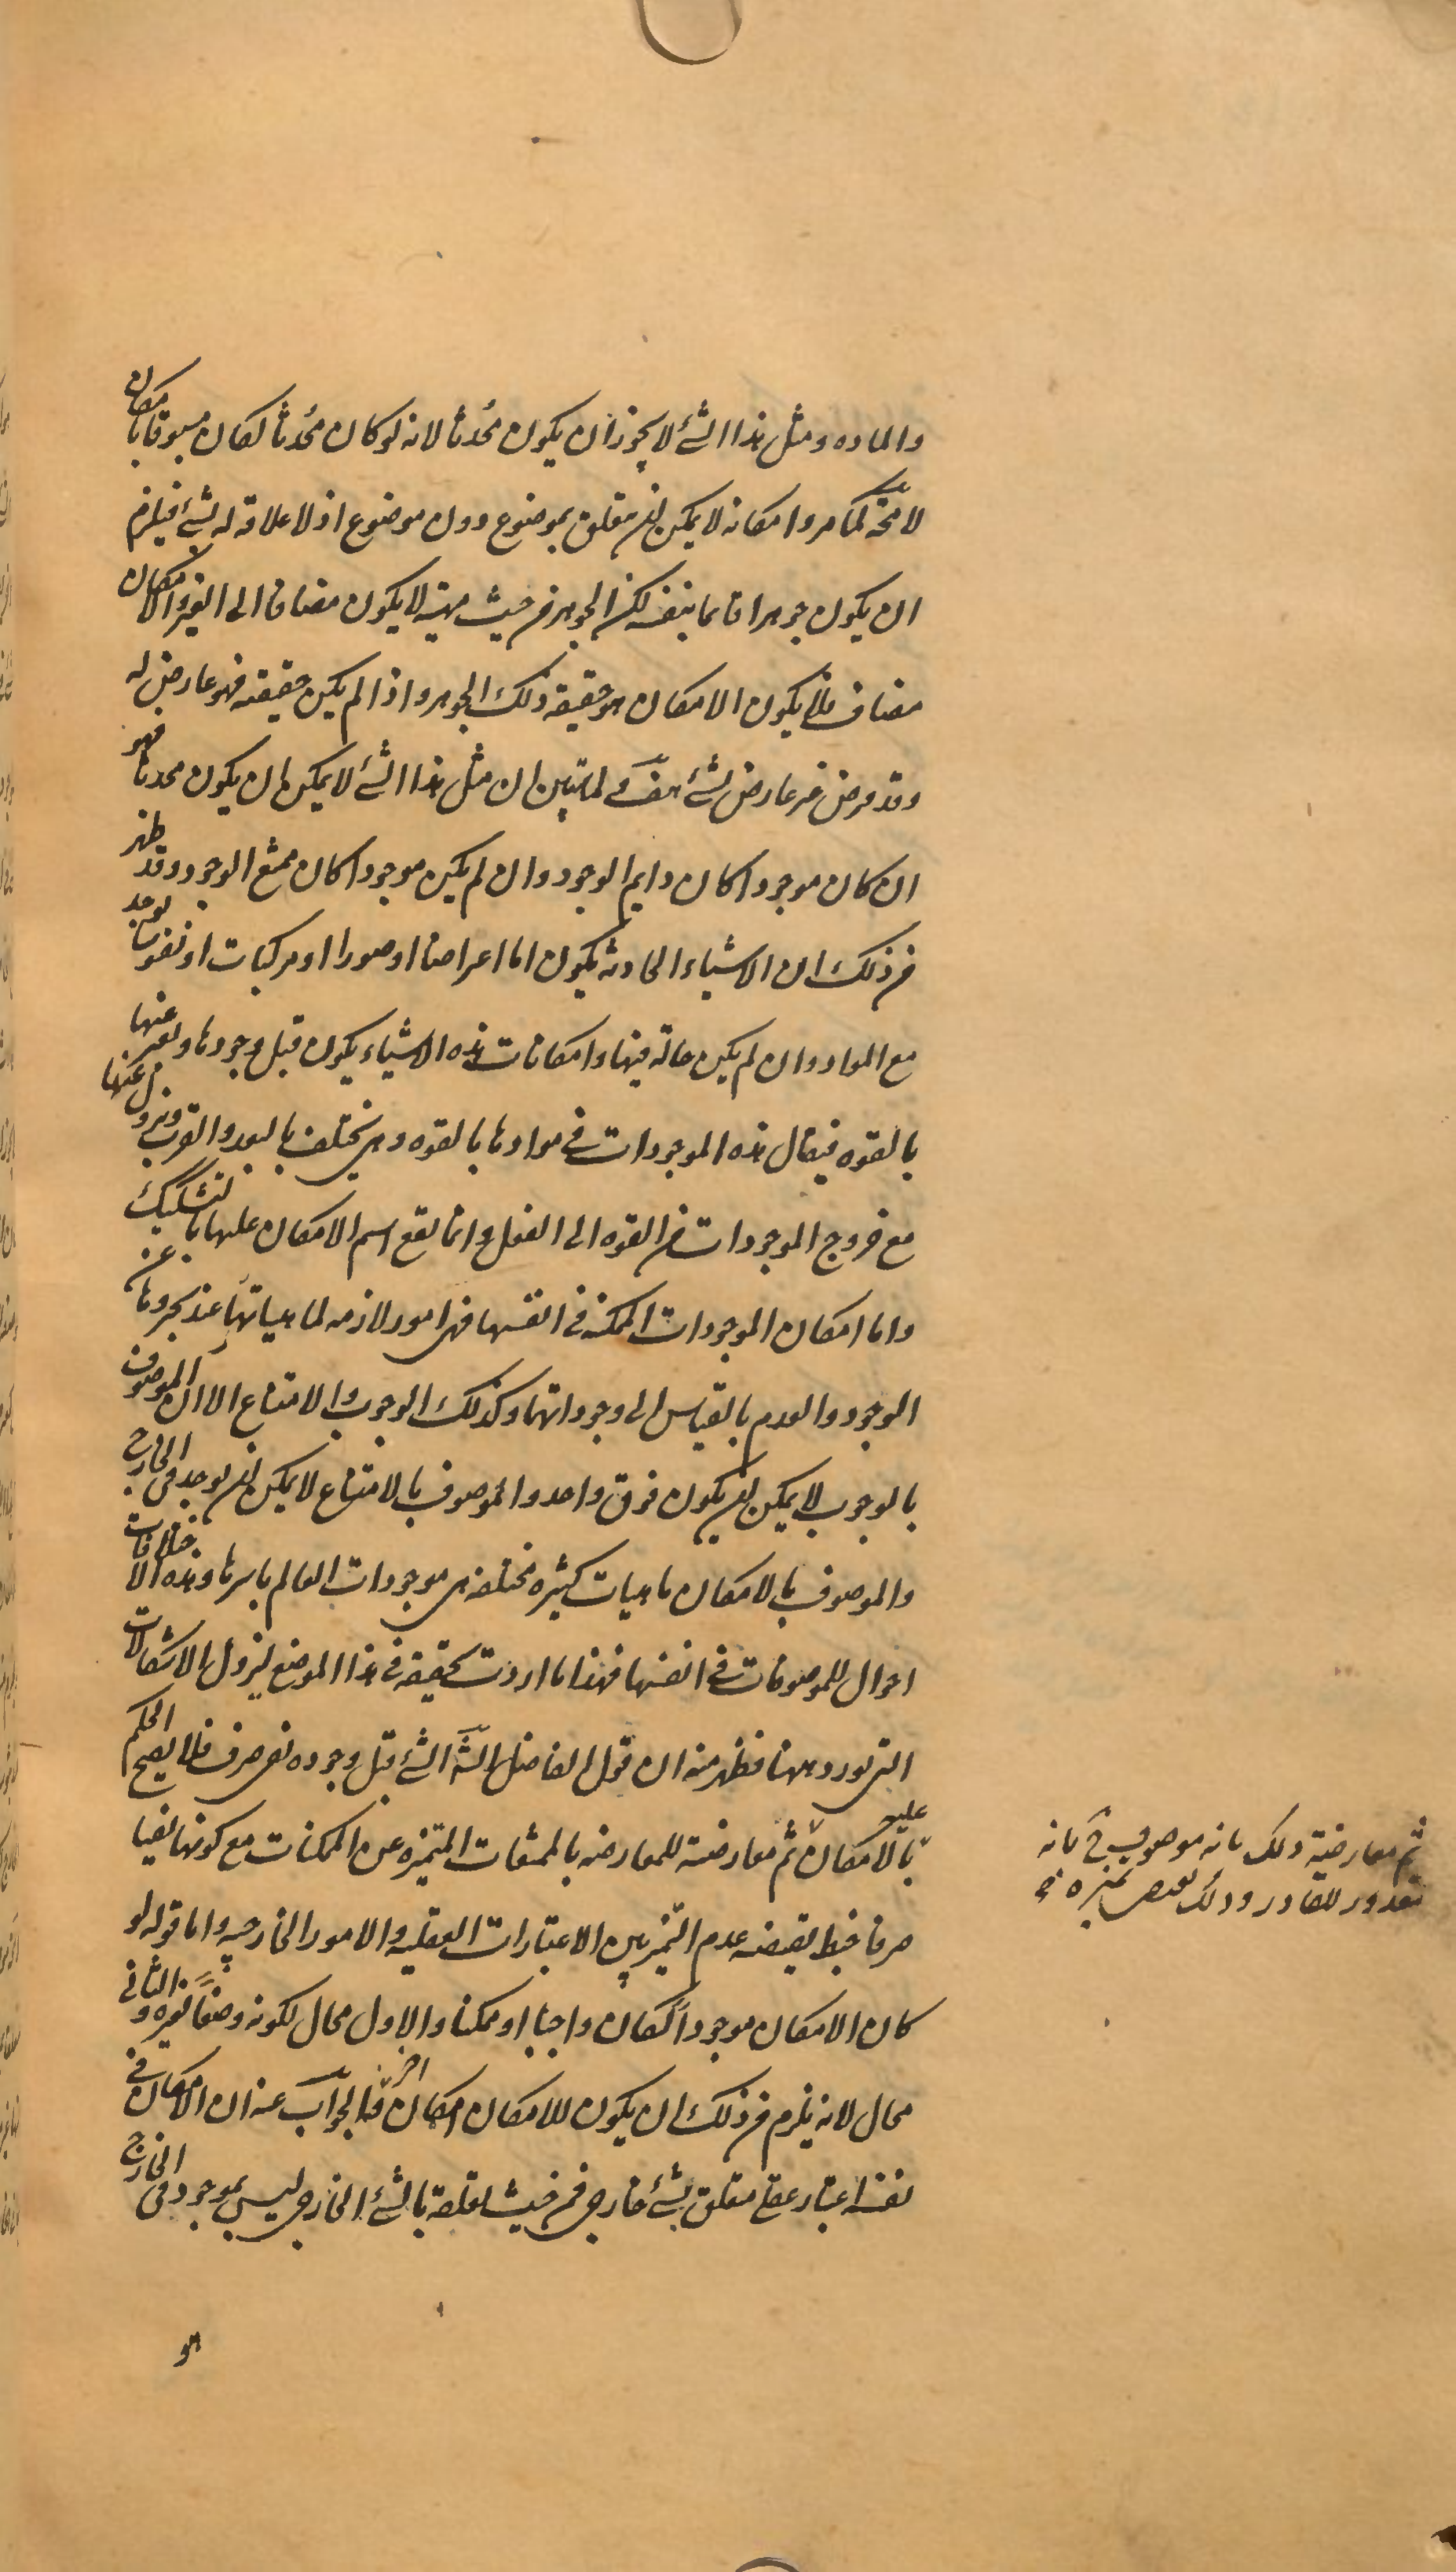 والماده ومثل هذا الشئ لا يجوز ان يكون محُدثا لانه لو كان محُدثا لكان مسبوقا بامكان
لا محّه كما مر وامكانه لا يمكن ان يتعلق بموضوع دون موضوع اذ لا علاقه له بشئ فيلزم
ان يكون جوهرا قايما بنفسه لكن الجوهر من حيث مهيته لا يكون مضافا الى الغير والامكان
مضاف فلا يكون الامكان هو حقيقه ذلك الجوهر واذا لم يكن حقيقته فهو عارض له
وقد فرض غير عارض لشئ هف ولما تبين ان مثل هذا الشئ لا يمكن ان يكون محدثا فهو
ان كان موجودا كان دايم الوجود وان لم يكن موجودا كان ممتنع الوجود وقد ظهر
من ذلك ان الاشياء الحادثه يكون اما اعراضا او صورا او مركبات او نفوسا يوجد
مع المواد وان لم يكن حالة فيها وامكانات هذه الاشياء يكون قبل وجودها ويعبر عنها
بالقوه فيقال هذه الموجودات في موادها بالقوه وهي يختلف بالبعد والقرب ويزول عنها
مع خروج الموجودات من القوه الى الفعل وانما يقع اسم الامكان عليها بالتشكيك
واما امكان الموجودات الممكنه في انفسها فهي امور لازمه لماهياتها عند تجردها عن
الوجود والعدم بالقياس الى وجوداتها وكذلك الوجوب والامتناع الا ان الموصوف
بالوجوب لا يمكن ان يكون فوق واحد والموصوف بالامتناع لا يمكن ان يوجد في الخارج
والموصوف بالامكان ماهيات كثيره مختلفه هي موجودات العالم باسرها وهذه الاختلافات
احوال للموصوفات في انفسها فهذا ما اردت تحقيقه في هذا الموضع ليزول الاشكالات
التي تورد ههنا فظهر منه ان قول الفاضل الشّ الشئ قبل وجوده نفي صرف فلا يصح الحكم
عليه بالامكان ثم معارضته للمعارضه بالممتنعات المتميزه عن الممكنات مع كونها نفيا
صرفا خبط يقتضيه عدم التمييز بين الاعتبارات العقليه والامور الخارجيه واما قوله لو
كان الامكان موجوداً لكان واجبا او ممكنا والاول محال لكونه وصفاً لغيره والثاني
محال لانه يلزم من ذلك ان يكون للامكان امكان اخر فالجواب عنه ان الامكان في
نفسه اعتبار عقلي متعلق بشئ خارجي فمن حيث تعلقه بالشئ الخارجي ليس بموجود في الخارج
هو
ثم معارضته ذلك بانه موصوف في بانه
مقدور للقادر وذلك يقتضي تميزه